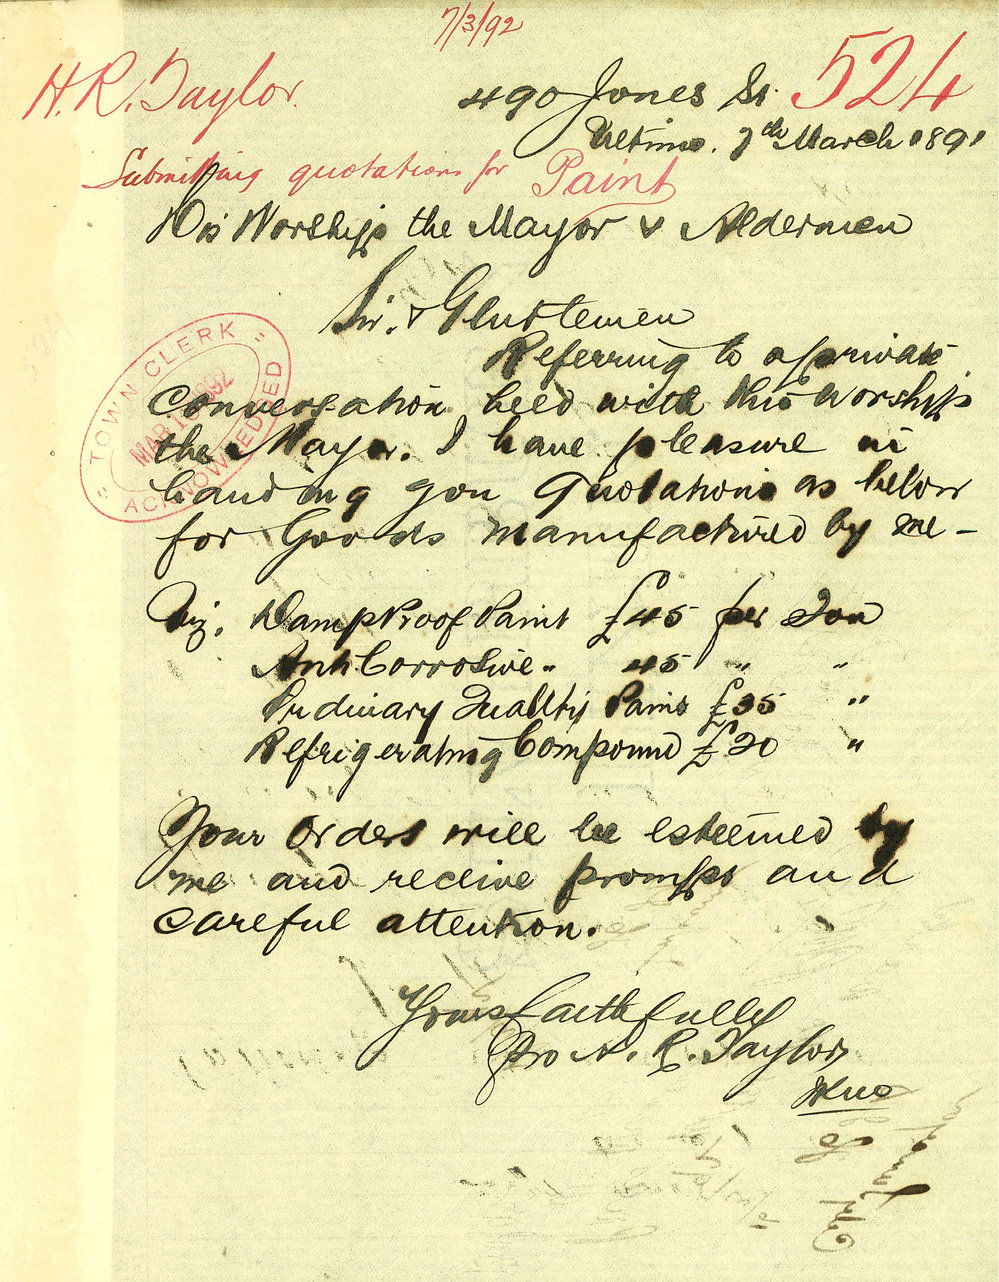 7/3/92
H. R. Taylor.
490 Jones St. 524
Ultimo. 7th March 1891
Submitting quotations for Paint
His Worship the Mayor & Aldermen
Sir. & Gentlemen
Referring to a private
Conversation held with His Worship
the Mayor. I have pleasure in
handing you Quotations as below
for Goods manufactured by me –
Viz. Damp Proof Paint £45 per Ton
Anti Corrosive " 45 " "
Ordinary Quality Paint £35 "
Refrigerating Compound £20 "
Your orders will be esteemed by
me and receive prompt and
careful attention.
Yours faithfully
Pro H. R. Taylor
TOWN CLERK
MAR 1892
ACKNOWLEDGED